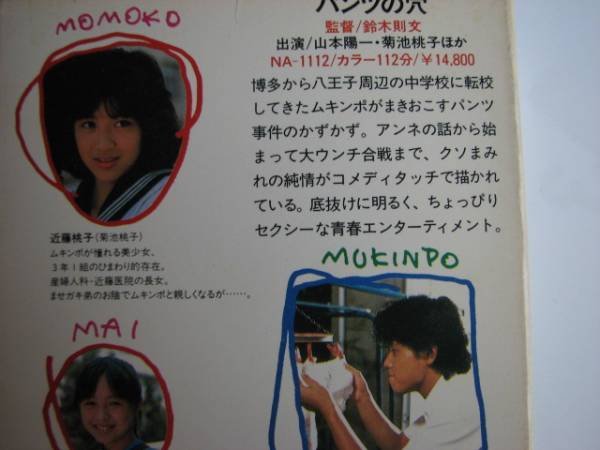 MOMOKO
パンツの穴
監督/鈴木則文
出演/山本陽一・菊池桃子ほか
NA-1112/カラー112分/￥14,800
博多から八王子周辺の中学校に転校
してきたムキンポがまきおこすパンツ
事件のかずかず。アンネの話から始
まって大ウンチ合戦まで、クソまみ
れの純情がコメディタッチで描かれ
ている。底抜けに明るく、ちょっぴり
セクシーな青春エンターティメント。
近藤桃子(菊池桃子)
ムキンポが憧れる美少女、
3年1組のひまわり的存在。
産婦人科・近藤医院の長女。
ませガキ弟のお陰でムキンポと親しくなるが……。
MUKINPO
MAI